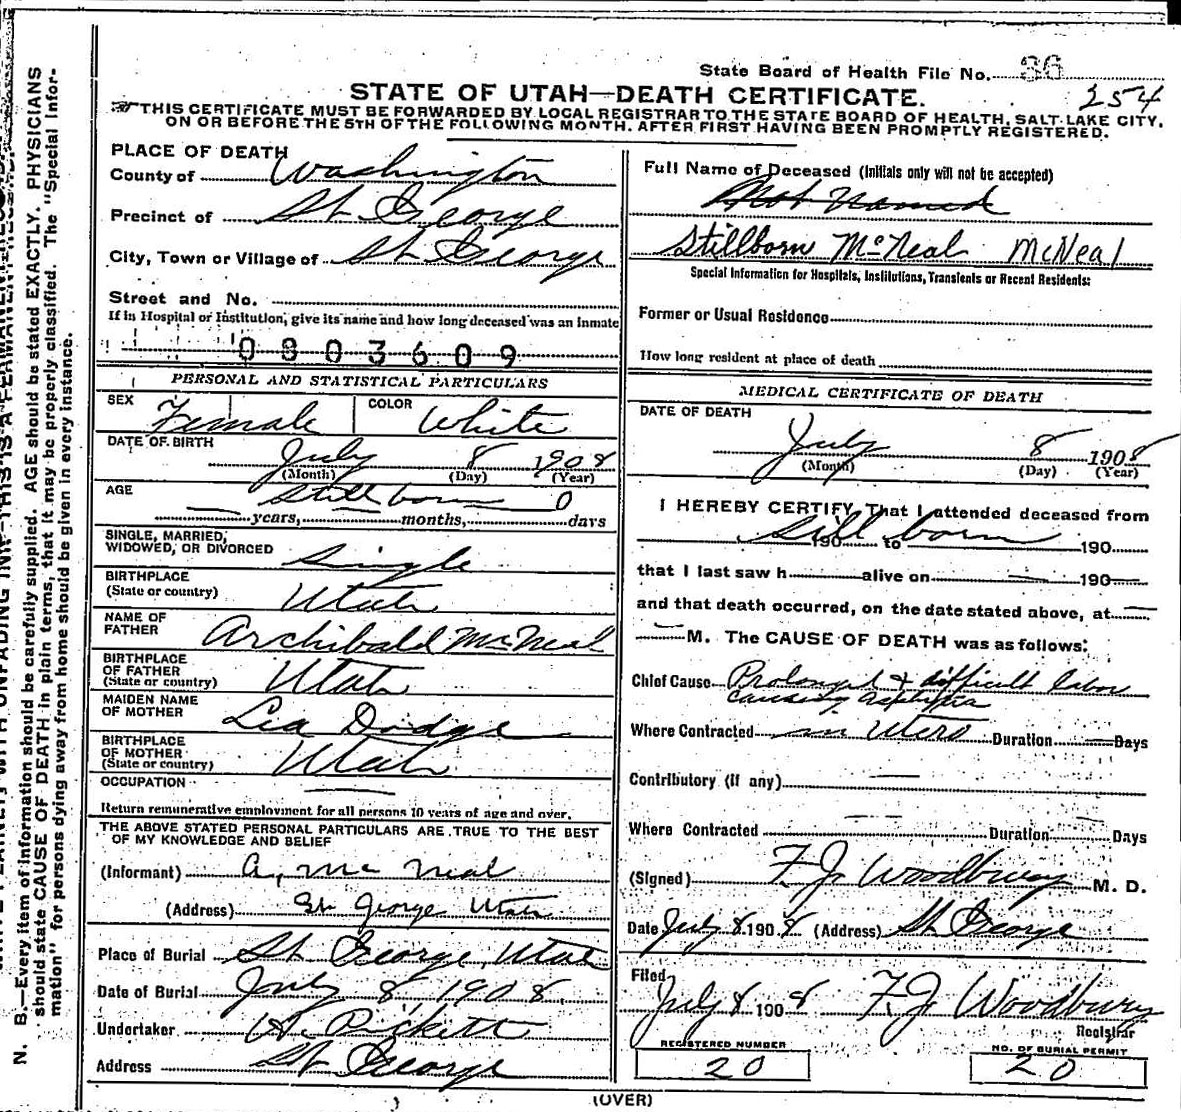 State Board of Health File No. 36
254
STATE OF UTAH—DEATH CERTIFICATE.
THIS CERTIFICATE MUST BE FORWARDED BY LOCAL REGISTRAR TO THE STATE BOARD OF HEALTH, SALT LAKE CITY,
ON OR BEFORE THE 5TH OF THE FOLLOWING MONTH. AFTER FIRST HAVING BEEN PROMPTLY REGISTERED.
PLACE OF DEATH
County of Washington
Precinct of St George
City, Town or Village of St George
Street and No.
If in Hospital or Institution, give its name and how long deceased was an inmate
0803609
PERSONAL AND STATISTICAL PARTICULARS
SEX Female COLOR White
DATE OF BIRTH
July 8 1908
(Month) (Day) (Year)
AGE Still born 0
years, months, days
SINGLE, MARRIED,
WIDOWED, OR DIVORCED Single
BIRTHPLACE
(State or country) Utah
NAME OF
FATHER Archibald McNeal
BIRTHPLACE
OF FATHER
(State or country) Utah
MAIDEN NAME
OF MOTHER Lea Dodge
BIRTHPLACE
OF MOTHER
(State or country) Utah
OCCUPATION
Return remunerative employment for all persons 10 years of age and over.
THE ABOVE STATED PERSONAL PARTICULARS ARE TRUE TO THE BEST
OF MY KNOWLEDGE AND BELIEF
(Informant) A, Mc Neal
(Address) St George Utah
Place of Burial St George, Utah
Date of Burial July 8, 1908.
Undertaker H. Pickett
Address St George
Full Name of Deceased (Initials only will not be accepted)
Not Named
Stillborn McNeal McNeal
Special Information for Hospitals, Institutions, Transients or Recent Residents:
Former or Usual Residence
How long resident at place of death
MEDICAL CERTIFICATE OF DEATH
DATE OF DEATH
July 8 1908
(Month) (Day) (Year)
I HEREBY CERTIFY, That I attended deceased from
still born
190 to 190
that I last saw h alive on 190
and that death occurred, on the date stated above, at
M. The CAUSE OF DEATH was as follows:
Chief Cause Prolonged & difficult labor
causing asphyxia
Where Contracted in Utero Duration Days
Contributory (if any)
Where Contracted Duration Days
(Signed) F. J. Woodbury M. D.
Date July 8 1908 (Address) St George
Filed
July 8 1908 F. J. Woodbury
Registrar
REGISTERED NUMBER
20
NO. OF BURIAL PERMIT
20
(OVER)
N. B.—Every item of information should be carefully supplied. AGE should be stated EXACTLY. PHYSICIANS
should state CAUSE OF DEATH in plain terms, that it may be properly classified. The "Special Infor-
mation" for persons dying away from home should be given in every instance.